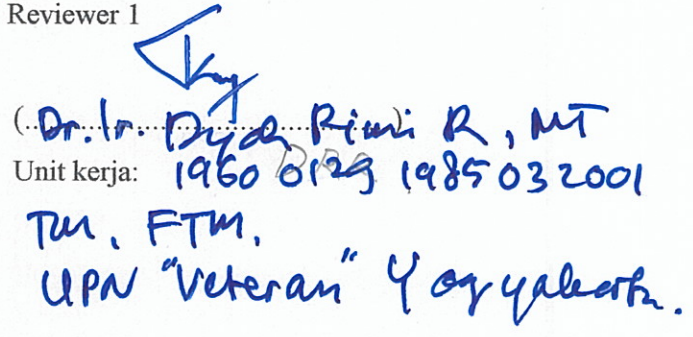 Reviewer 1
(Dr. Ir. Dyah Rini R, MT)
Unit kerja: 1960 0129 198503 2001
TM, FTM,
UPN "Veteran" Yogyakarta.